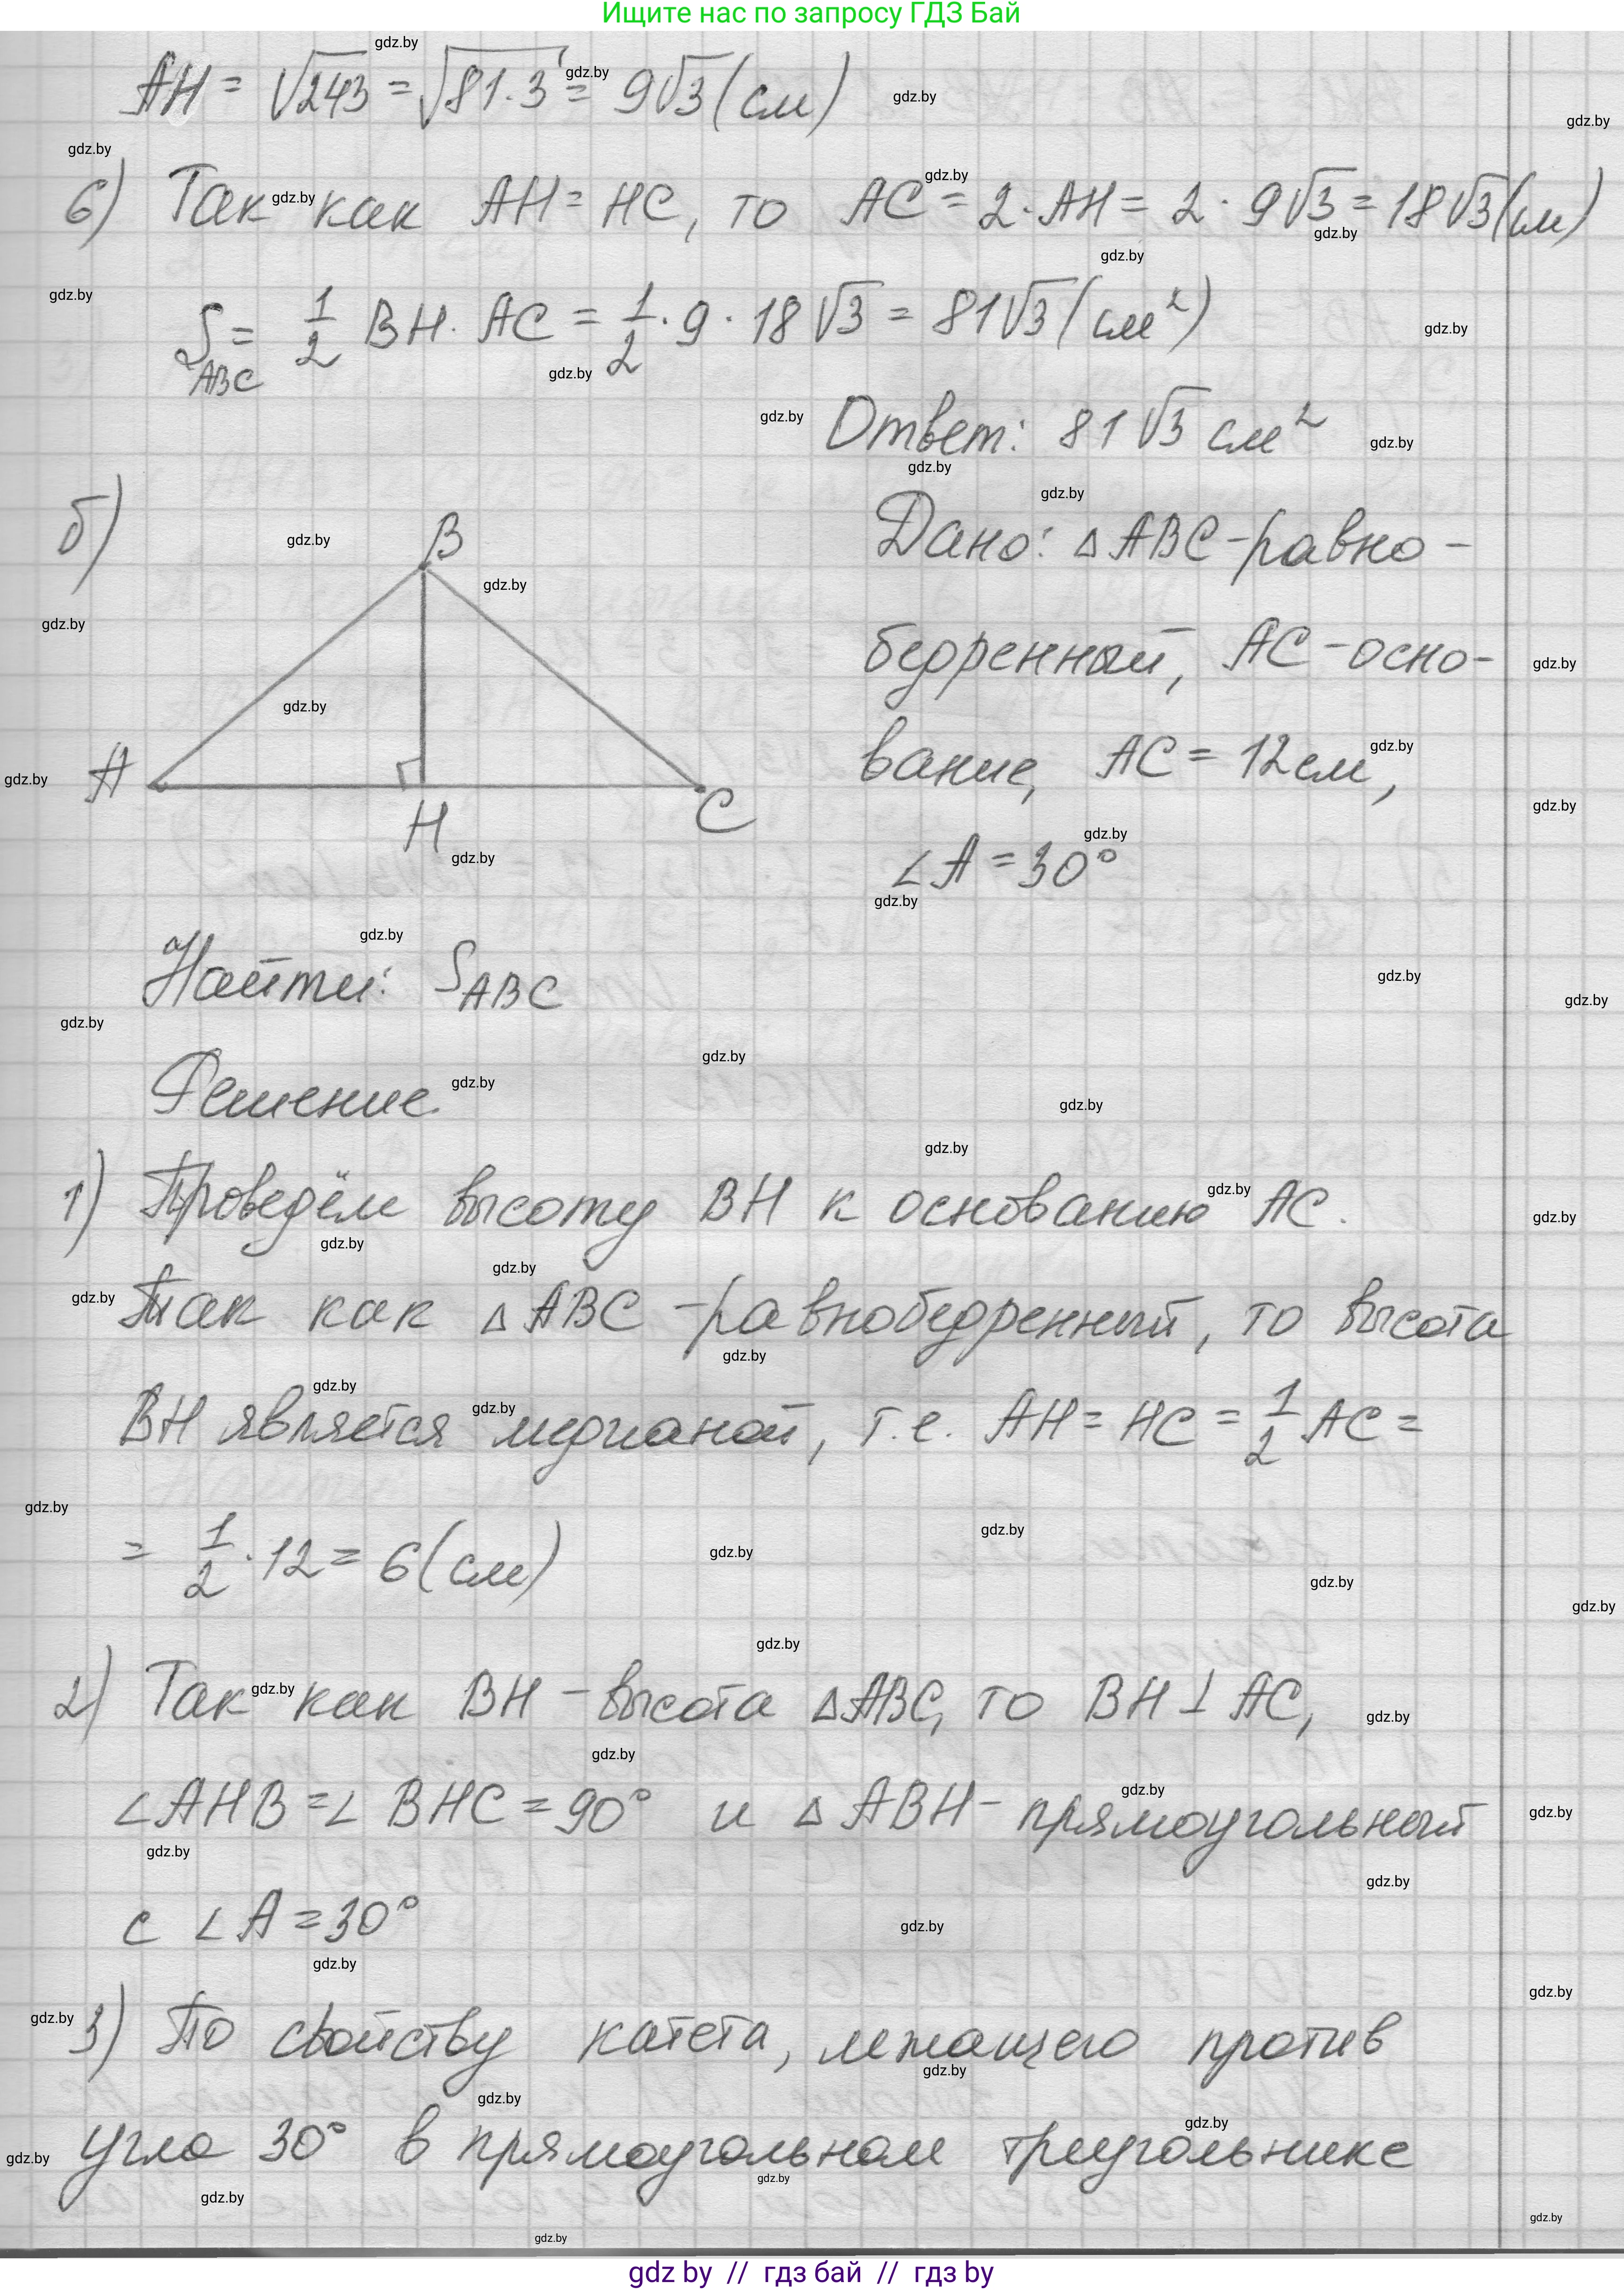 Ищите нас по запросу ГДЗ Бай
AH = √243 = √81·3 = 9√3 (см)
6) Так как AH = HC, то AC = 2·AH = 2·9√3 = 18√3 (см)
S_ABC = 1/2 BH·AC = 1/2·9·18√3 = 81√3 (см²)
Ответ: 81√3 см²
б)
B
A
H
C
Дано: △ABC - равно-
бедренный, AC - осно-
вание, AC = 12 см,
∠A = 30°
Найти: S_ABC
Решение.
1) Проведём высоту BH к основанию AC.
Так как △ABC - равнобедренный, то высота
BH является медианой, т.е. AH = HC = 1/2 AC =
= 1/2·12 = 6 (см)
2) Так как BH - высота △ABC, то BH ⊥ AC,
∠AHB = ∠BHC = 90° и △ABH - прямоугольный
с ∠A = 30°
3) По свойству катета, лежащего против
угла 30° в прямоугольном треугольнике
gdz by // гдз бай // гдз by